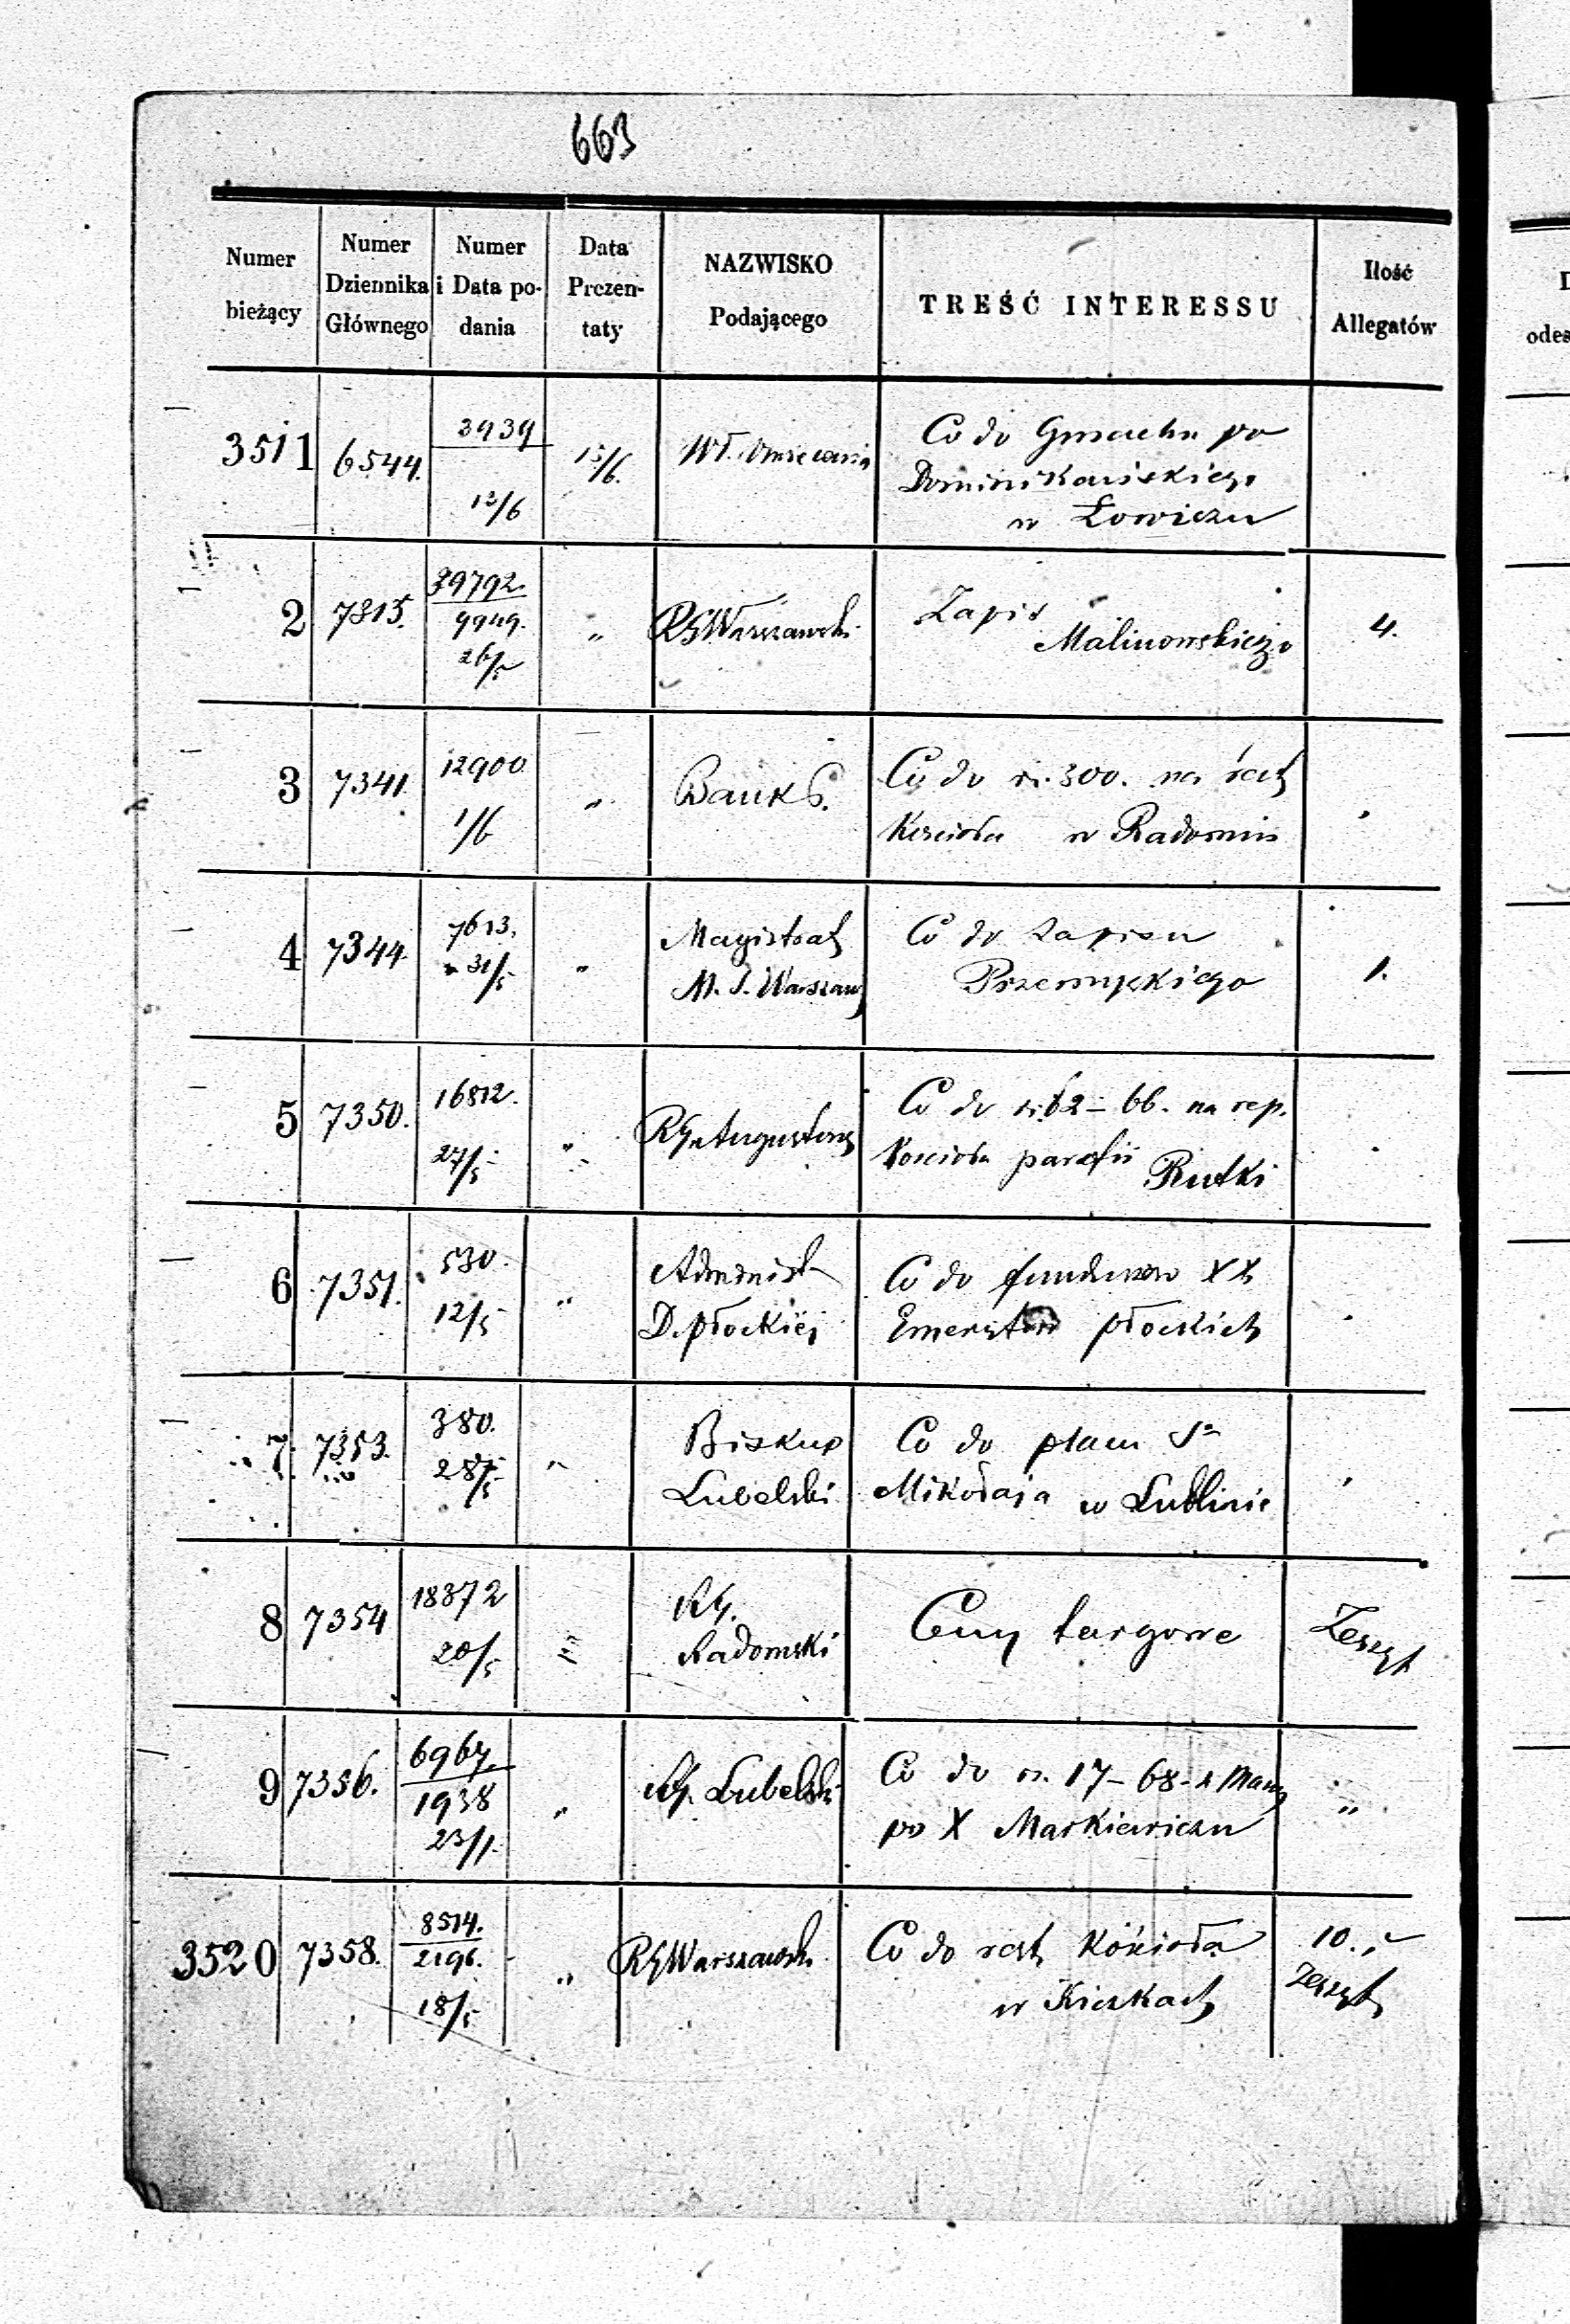 663
Numer bieżący
Numer Dziennika Głównego
Numer i Data podania
Data Prezentaty
NAZWISKO Podającego
TREŚĆ INTERESSU
Ilość Allegatów
3511 6544. 3939 12/6 15/6. Wł.
Co do Gmachu po
Dominikańskiego
w Łowiczu
2 7315. 39792. 9949. 26/5 " RGWarszawski 4.
Zapis
Malinowskiego
3 7341. 12900 1/6 " Bank P.
Co do rs. 300. na rest
Kościoła w Radomiu
4 7344. 7613. 31/5 "
Magistrat
M. S. Warszawy
Co do Zapisu
Przemyskiego
1.
5 7350. 16812. 27/5 " RG Augustows
Co do rs 62 – 66. na rep.
Kościoła parafii Rutki
6 7351. 530. 12/5 "
Administ
D. Płockiej
Co do funduszow XX
Emerytów płockich
7 7353. 380. 28/5 "
Biskup
Lubelski
Co do placu Sgo
Mikołaja w Lublinie
8 7354 18372 20/5 "
RG.
Radomski
Ceny targowe
Zeszyt
9 7356. 6967. 1938 23/1. " RG. Lubelski
Co do rs. 17 – 68 z Massy
po X Markiewiczu
"
3520 7358. 8514. 2196. 18/5 " RGWarszawsk
Co do rest Kościoła
w Kiczkach
10. i
Zeszyt
odes